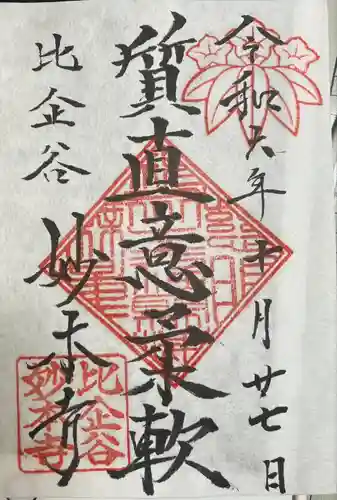 令和六年十月廿七日
質直意柔軟
比企谷
妙本寺
比企谷
妙本寺